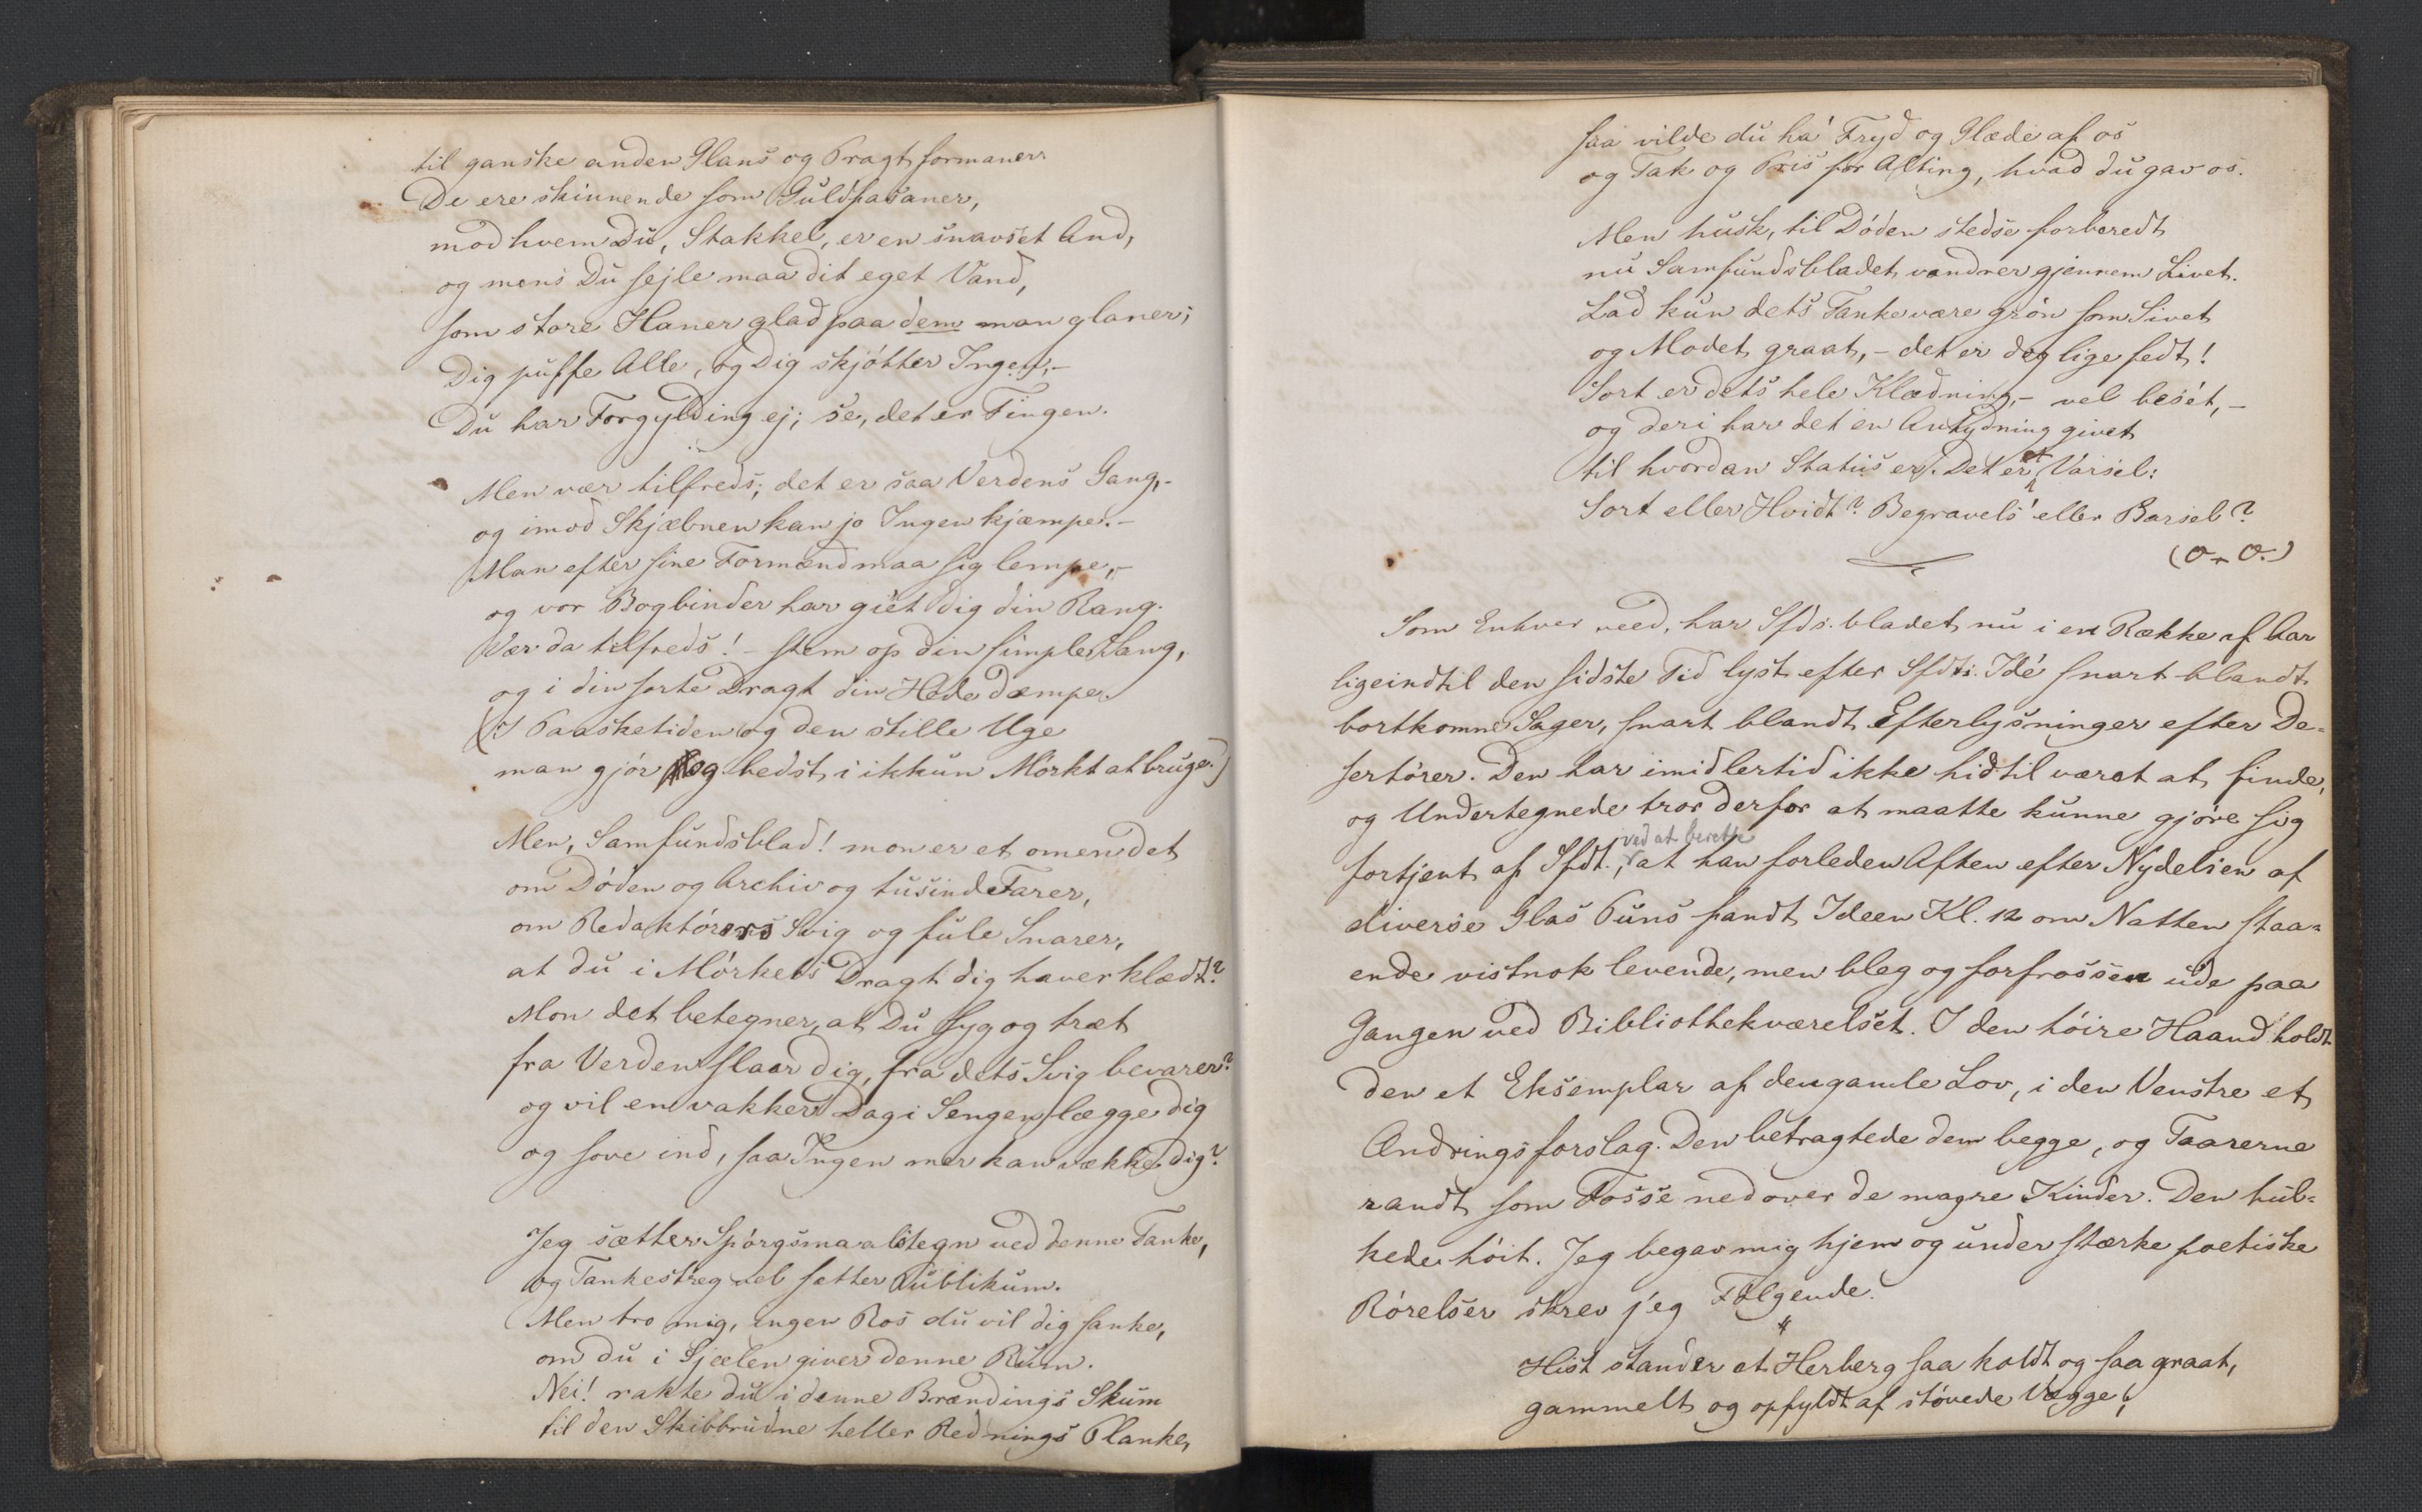 til ganske anden Glans og Pragt formaner.
De ere skinnende som Guldfasaner,
mod hvem Du, Stakkel, er en snavset And,
og mens Du sejle maa dit eget Vand,
som store Haner glad paa dem man glaner;
Dig puffe Alle, og Dig skjøtter Ingen,-
Du har Forgylding ej; se, det er Tingen.
Men vær tilfreds; det er saa Verdens Gang,-
og imod Skjæbnen kan jo Ingen kjæmpe.-
Man efter sine Formænd maa sig lempe,-
og vor Bogbinder har giet dig din Rang.
Vær da tilfreds! - stem op din simple Sang,
og i din sorte Dragt din Hede dæmpe.
(I Paasketiden og den stille Uge
man gjør og bedst, i ikkun Mørkt at bruge.)
Men, Samfundsblad! mon er et omen det
om Døden og Archiv og tusinde Farer,
om Redaktørers Svig og fule Snarer,
at du i Mørkets Dragt dig haver klædt?
Mon det betegner, at Du syg og træt
fra Verden slaar dig, fra dets Svig bevarer?
og vil en vakker Dag i Sengen lægge dig
og sove ind, saa Ingen mer kan vække dig?
Jeg sætter Spørgsmaalstegn ved denne Tanke,
og Tankestreg vel sætter Publikum.
Men tro mig, ingen Ros du vil dig sanke,
om du i Sjælen giver denne Rum.
Nei! rakte du i denne Brændings Skum
til den Skibbrudne heller Rednings Planke,
saa vilde du ha' Fryd og Glæde af os
og Tak og Pris for Alting, hvad du gav os.
Men husk, til Døden stedse forberedt
nu Samfundsbladet vandrer gjennem Livet.
Lad kun dets Tanke være grøn som Sivet
og Modet graat, - det er dog lige fedt!
Sort er dets hele Klædning, - vel beset, -
og deri har det en Antydning givet
til hvordan Status er. Det er et Varsel:
Sort eller Hvidt? Begravels' eller Barsel?
(O + O.)
Som Enhver veed, har Sfds. bladet nu i en Række af Aar
ligeindtil den sidste Tid lyst efter Sfdts. Idé snart blandt
bortkomne Sager, snart blandt Efterlysninger efter De-
sertører. Den har imidlertid ikke hidtil været at finde,
og Undertegnede tror derfor at maatte kunne gjøre sig
fortjent af Sfdt., ved at berette at han forleden Aften efter Nydelsen af
diverse Glas Puns fandt Ideen Kl. 12 om Natten staa-
ende vistnok levende, men bleg og forfrossen ude paa
Gangen ved Bibliothekværelset. I den høire Haand holdt
den et Eksemplar af den gamle Lov, i den Venstre et
Ændringsforslag. Den betragtede dem begge, og Taarerne
randt som Fosse nedover de magre Kinder. Den hul-
kede høit. Jeg begav mig hjem og under stærke poetiske
Rørelser skrev jeg Følgende.
Hist stander et Herberg saa koldt og saa graat,
gammelt og opfyldt af støvede Vægge;